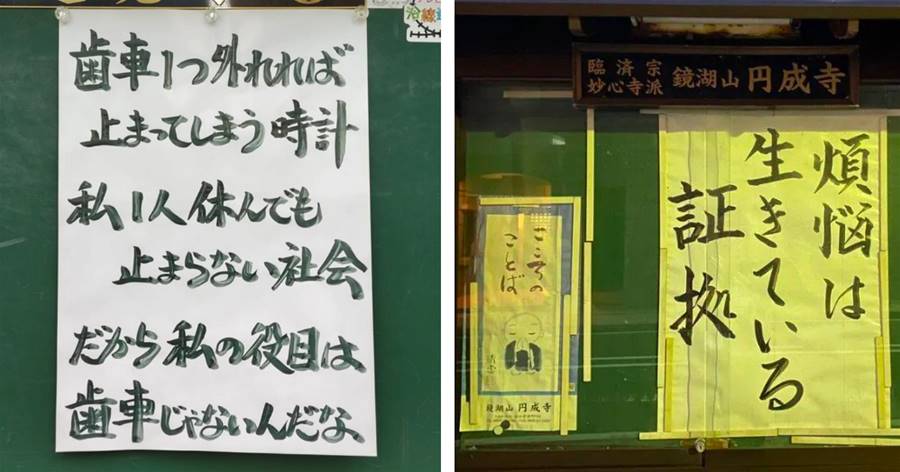 歯車1つ外れれば
止まってしまう時計
私1人休んでも
止まらない社会
だから私の役目は
歯車じゃないんだな
沿線
臨済宗
妙心寺派
鏡湖山 円成寺
煩悩は
生きている
証拠
こころの
ことば
鏡湖山 円成寺